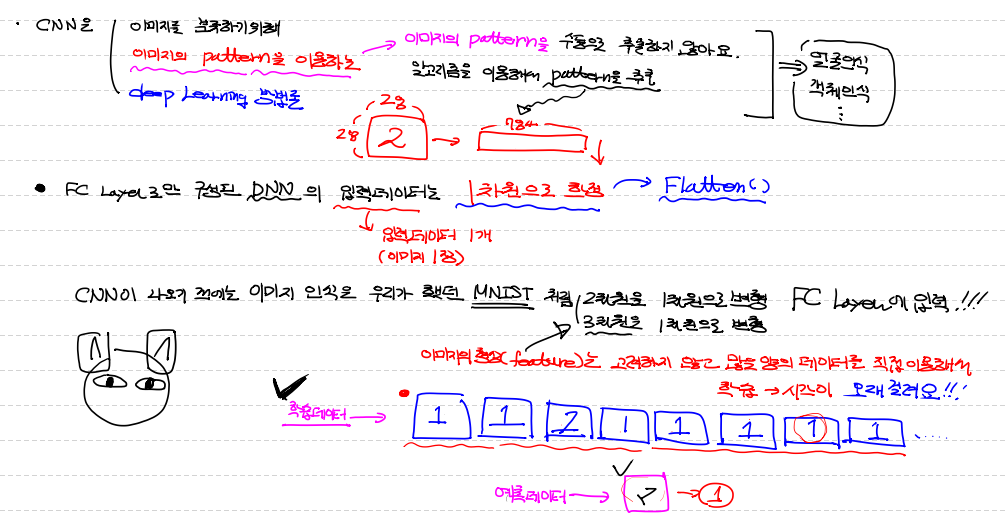 · CNN은 이미지를 분류하기위해
이미지의 pattern을 이용하는 → 이미지의 pattern을 수동으로 추출하지 않아요.
알고리즘을 이용해서 pattern을 추출
deep Learning 방법론
⇒ 얼굴인식
객체인식
⋮
28
28 2 → 784
• FC Layer로만 구성된 DNN의 입력데이터는 1차원으로 한정 → Flatten()
입력데이터 1개
(이미지 1장)
CNN이 나오기 전에는 이미지 인식은 우리가 했던 MNIST 처럼 2차원을 1차원으로 변형 FC Layer에 입력!!!
3차원을 1차원으로 변형
이미지의 특징(feature)는 고려하지 않고 많은 양의 데이터를 직접 이용해서
학습 → 시간이 오래걸려요!!!
학습데이터 → 1 1 2 1 1 1 1 1 .....
예측데이터 → 2 → 1